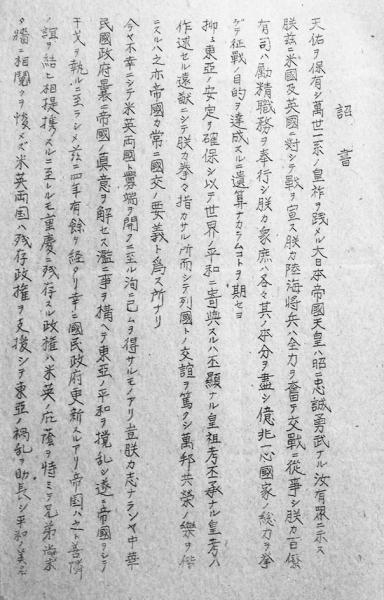 詔書
天佑ヲ保有シ萬世一系ノ皇祚ヲ践メル大日本帝國天皇ハ昭ニ忠誠勇武ナル汝有眾ニ示ス
朕茲ニ米国及英國ニ対シテ戰ヲ宣ス朕カ陸海將兵ハ全力ヲ奮テ交戰ニ從事シ朕カ百僚
有司ハ励精職務ヲ奉行シ朕カ衆庶ハ各々其ノ本分ヲ盡シ億兆一心國家ノ総力ヲ挙
ゲテ征戰ノ目的ヲ達成スルニ遺算ナカラムコトヲ期セヨ
抑〻東亞ノ安定ヲ確保シ以テ世界ノ平和ニ寄與スルハ丕顯ナル皇祖考丕承ナル皇考ハ
作述セル遠猷ニシテ朕カ拳々指カサル所而シテ列國トノ交誼ヲ篤クシ萬邦共榮ノ樂ヲ偕
ニスルハ之亦帝國カ常ニ國交ノ要義ト爲ス所ナリ
今ヤ不幸ニシテ米英両國ト釁端ヲ開クニ至ル洵ニ已ムヲ得サルモノアリ豈朕カ志ナランヤ中華
民國政府曩ニ帝國ノ真意ヲ解セス濫ニ事ヲ構ヘテ東亞ノ平和ヲ撹乱シ遂ニ帝國ヲシテ
干戈ヲ執ルニ至ラシメ茲ニ四年有餘ヲ経タリ幸ニ國民政府更新スルアリ帝国ハ之ト善隣
ノ誼ヲ結ヒ相提携スルニ至レルモ重慶ニ残存スル政権ハ米英ノ庇蔭ヲ恃ミテ兄弟尚未
タ牆ニ相鬩クヲ悛メズ米英両国ハ残存政権ヲ支援シテ東亞ノ禍乱ヲ助長シ平和ノ美名